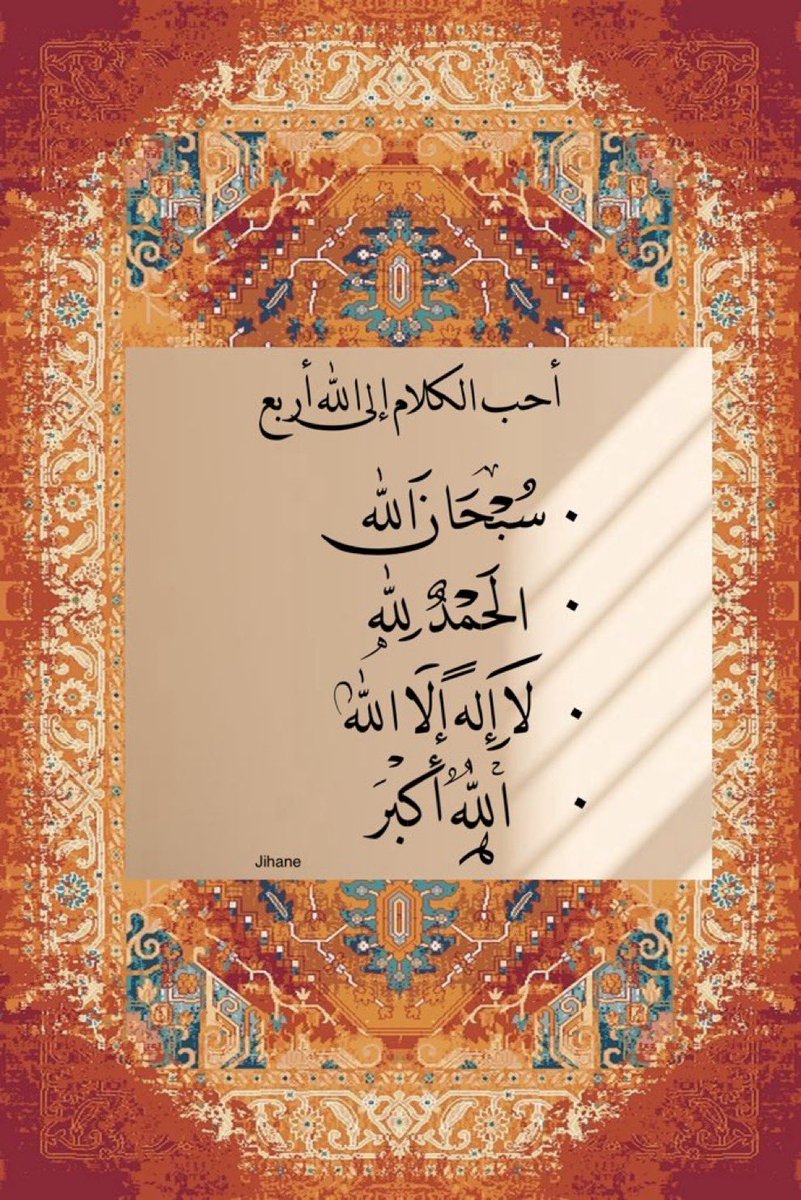 أحب الكلام إلى الله أربع
• سُبْحَانَ الله
• الْحَمْدُ لِلّٰهِ
• لَا إِلٰهَ إِلَّا الله
• اللّٰهُ أَكْبَرَ
Jihane